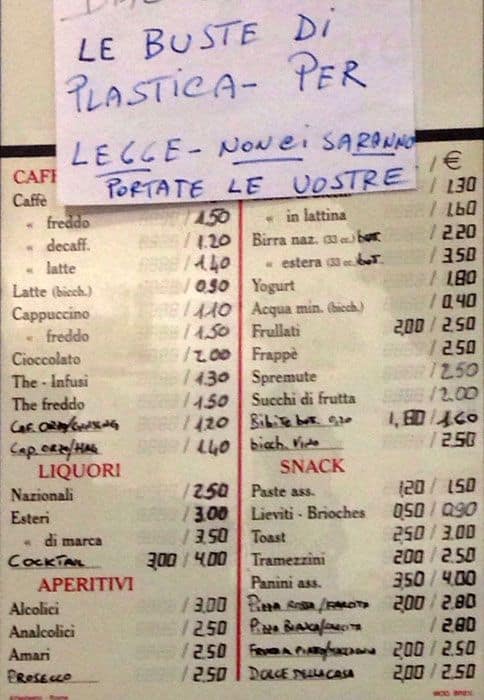 LE BUSTE DI
PLASTICA- PER
LEGGE- NON CI SARANNO
PORTATE LE VOSTRE
CAFF
Caffè
« freddo /1.50
« decaff. /1.20
« latte /1.40
Latte (bicch.) /0.90
Cappuccino /1.10
« freddo /1.50
Cioccolato /2.00
The - Infusi /1.30
The freddo /1.50
Caf. ORZO/GINSENG /1.20
Cap. ORZO/HAG /1.40
LIQUORI
Nazionali /2.50
Esteri /3.00
« di marca /3.50
COCKTAIL 3,00 / 4.00
APERITIVI
Alcolici /3.00
Analcolici /2.50
Amari /2.50
PROSECCO /2.50
/€
/1.30
« in lattina /1.60
Birra naz. (33 cc.) bot. /2.20
« estera (33 cc.) bot. /3.50
Yogurt /1.80
Acqua min. (bicch.) /0,40
Frullati 2,00 / 2.50
Frappè /2.50
Spremute /2.50
Succhi di frutta /2.00
Bibite bot. 0,20 1,80 / 1.60
bicch. vino /2.50
SNACK
Paste ass. 1,20 / 1.50
Lieviti - Brioches 0,50 / 0.90
Toast 2,50 / 3.00
Tramezzini 2,00 / 2.50
Panini ass. 3,50 / 4.00
PIZZA ROSSA/FARCITA 2,00 / 2.80
PIZZA BIANCA/FARCITA /2.80
2,00 / 2.50
DOLCE DELLA CASA 2,00 / 2.50